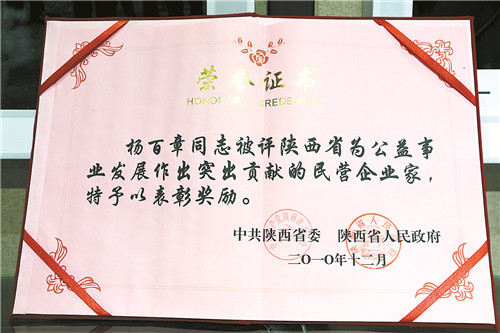 荣誉证书
HONORARY CREDENTIAL
杨百章同志被评陕西省为公益事
业发展作出突出贡献的民营企业家，
特予以表彰奖励。
中共陕西省委 陕西省人民政府
二〇一〇年十二月